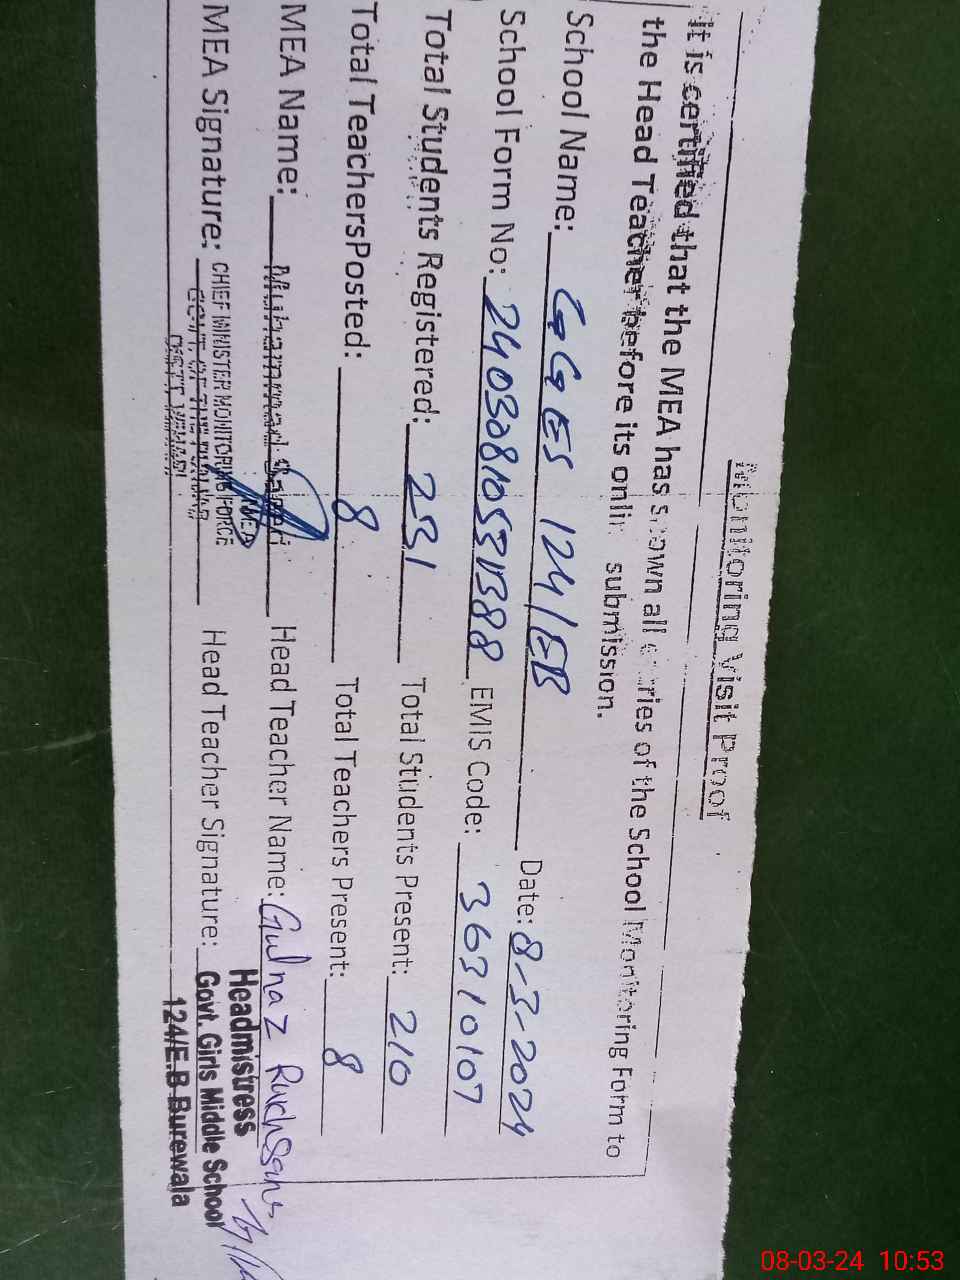 Monitoring Visit Proof
It is certified that the MEA has shown all entries of the School Monitoring Form to
the Head Teacher before its online submission.
School Name: GGES 124/EB Date: 8-3-2024
School Form No: EMIS Code: 36310107
Total Students Registered: 231 Total Students Present: 210
Total TeachersPosted: 8 Total Teachers Present: 8
MEA Name: Muhammad Saeed Head Teacher Name: Gulnaz Rukhsana
(MEA)
MEA Signature: CHIEF MINISTER MONITORING FORCE Head Teacher Signature: Headmistress
GOVT. OF THE PUNJAB Govt. Girls Middle School
DISTT. VEHARI 124/E.B Burewala
08-03-24 10:53